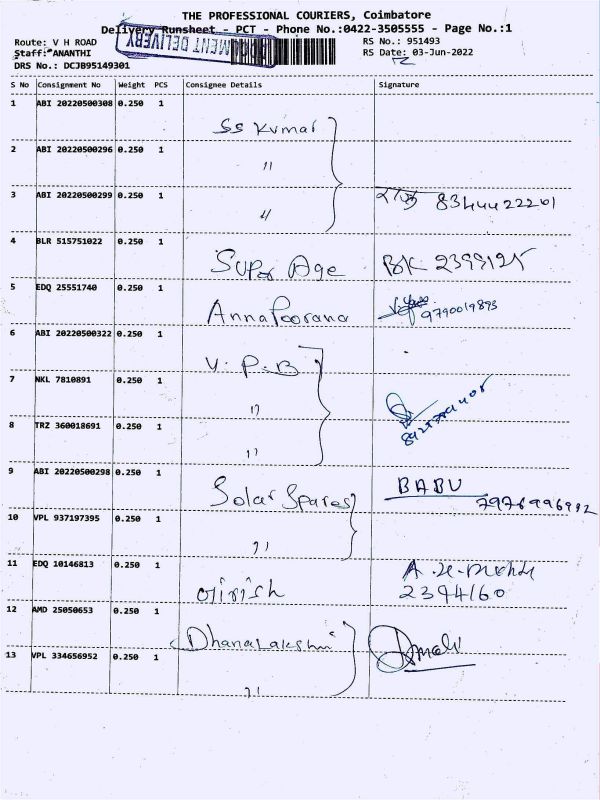 THE PROFESSIONAL COURIERS, Coimbatore
Delivery Runsheet - PCT - Phone No.:0422-3505555 - Page No.:1
Route: V H ROAD
RS No.: 951493
Staff: ANANTHI
RS Date: 03-Jun-2022
DRS No.: DCJB95149301
DOCUMENT DELIVERY
S No Consignment No Weight PCS Consignee Details Signature
1 ABI 20220500308 0.250 1
SS Kumar
2 ABI 20220500296 0.250 1
"
3 ABI 20220500299 0.250 1
" 8344422201
4 BLR 515751022 0.250 1
Super Age BK 2399125
5 EDQ 25551740 0.250 1
Annapoorana 9790019893
6 ABI 20220500322 0.250 1
V. P. B
7 NKL 7810891 0.250 1
"
8 TRZ 360018691 0.250 1
"
9 ABI 20220500298 0.250 1
Solar Spares BABU
7976996992
10 VPL 937197395 0.250 1
"
11 EDQ 10146813 0.250 1
Girish 2394160
12 AMD 25050653 0.250 1
Dhanalakshmi
13 VPL 334656952 0.250 1
"